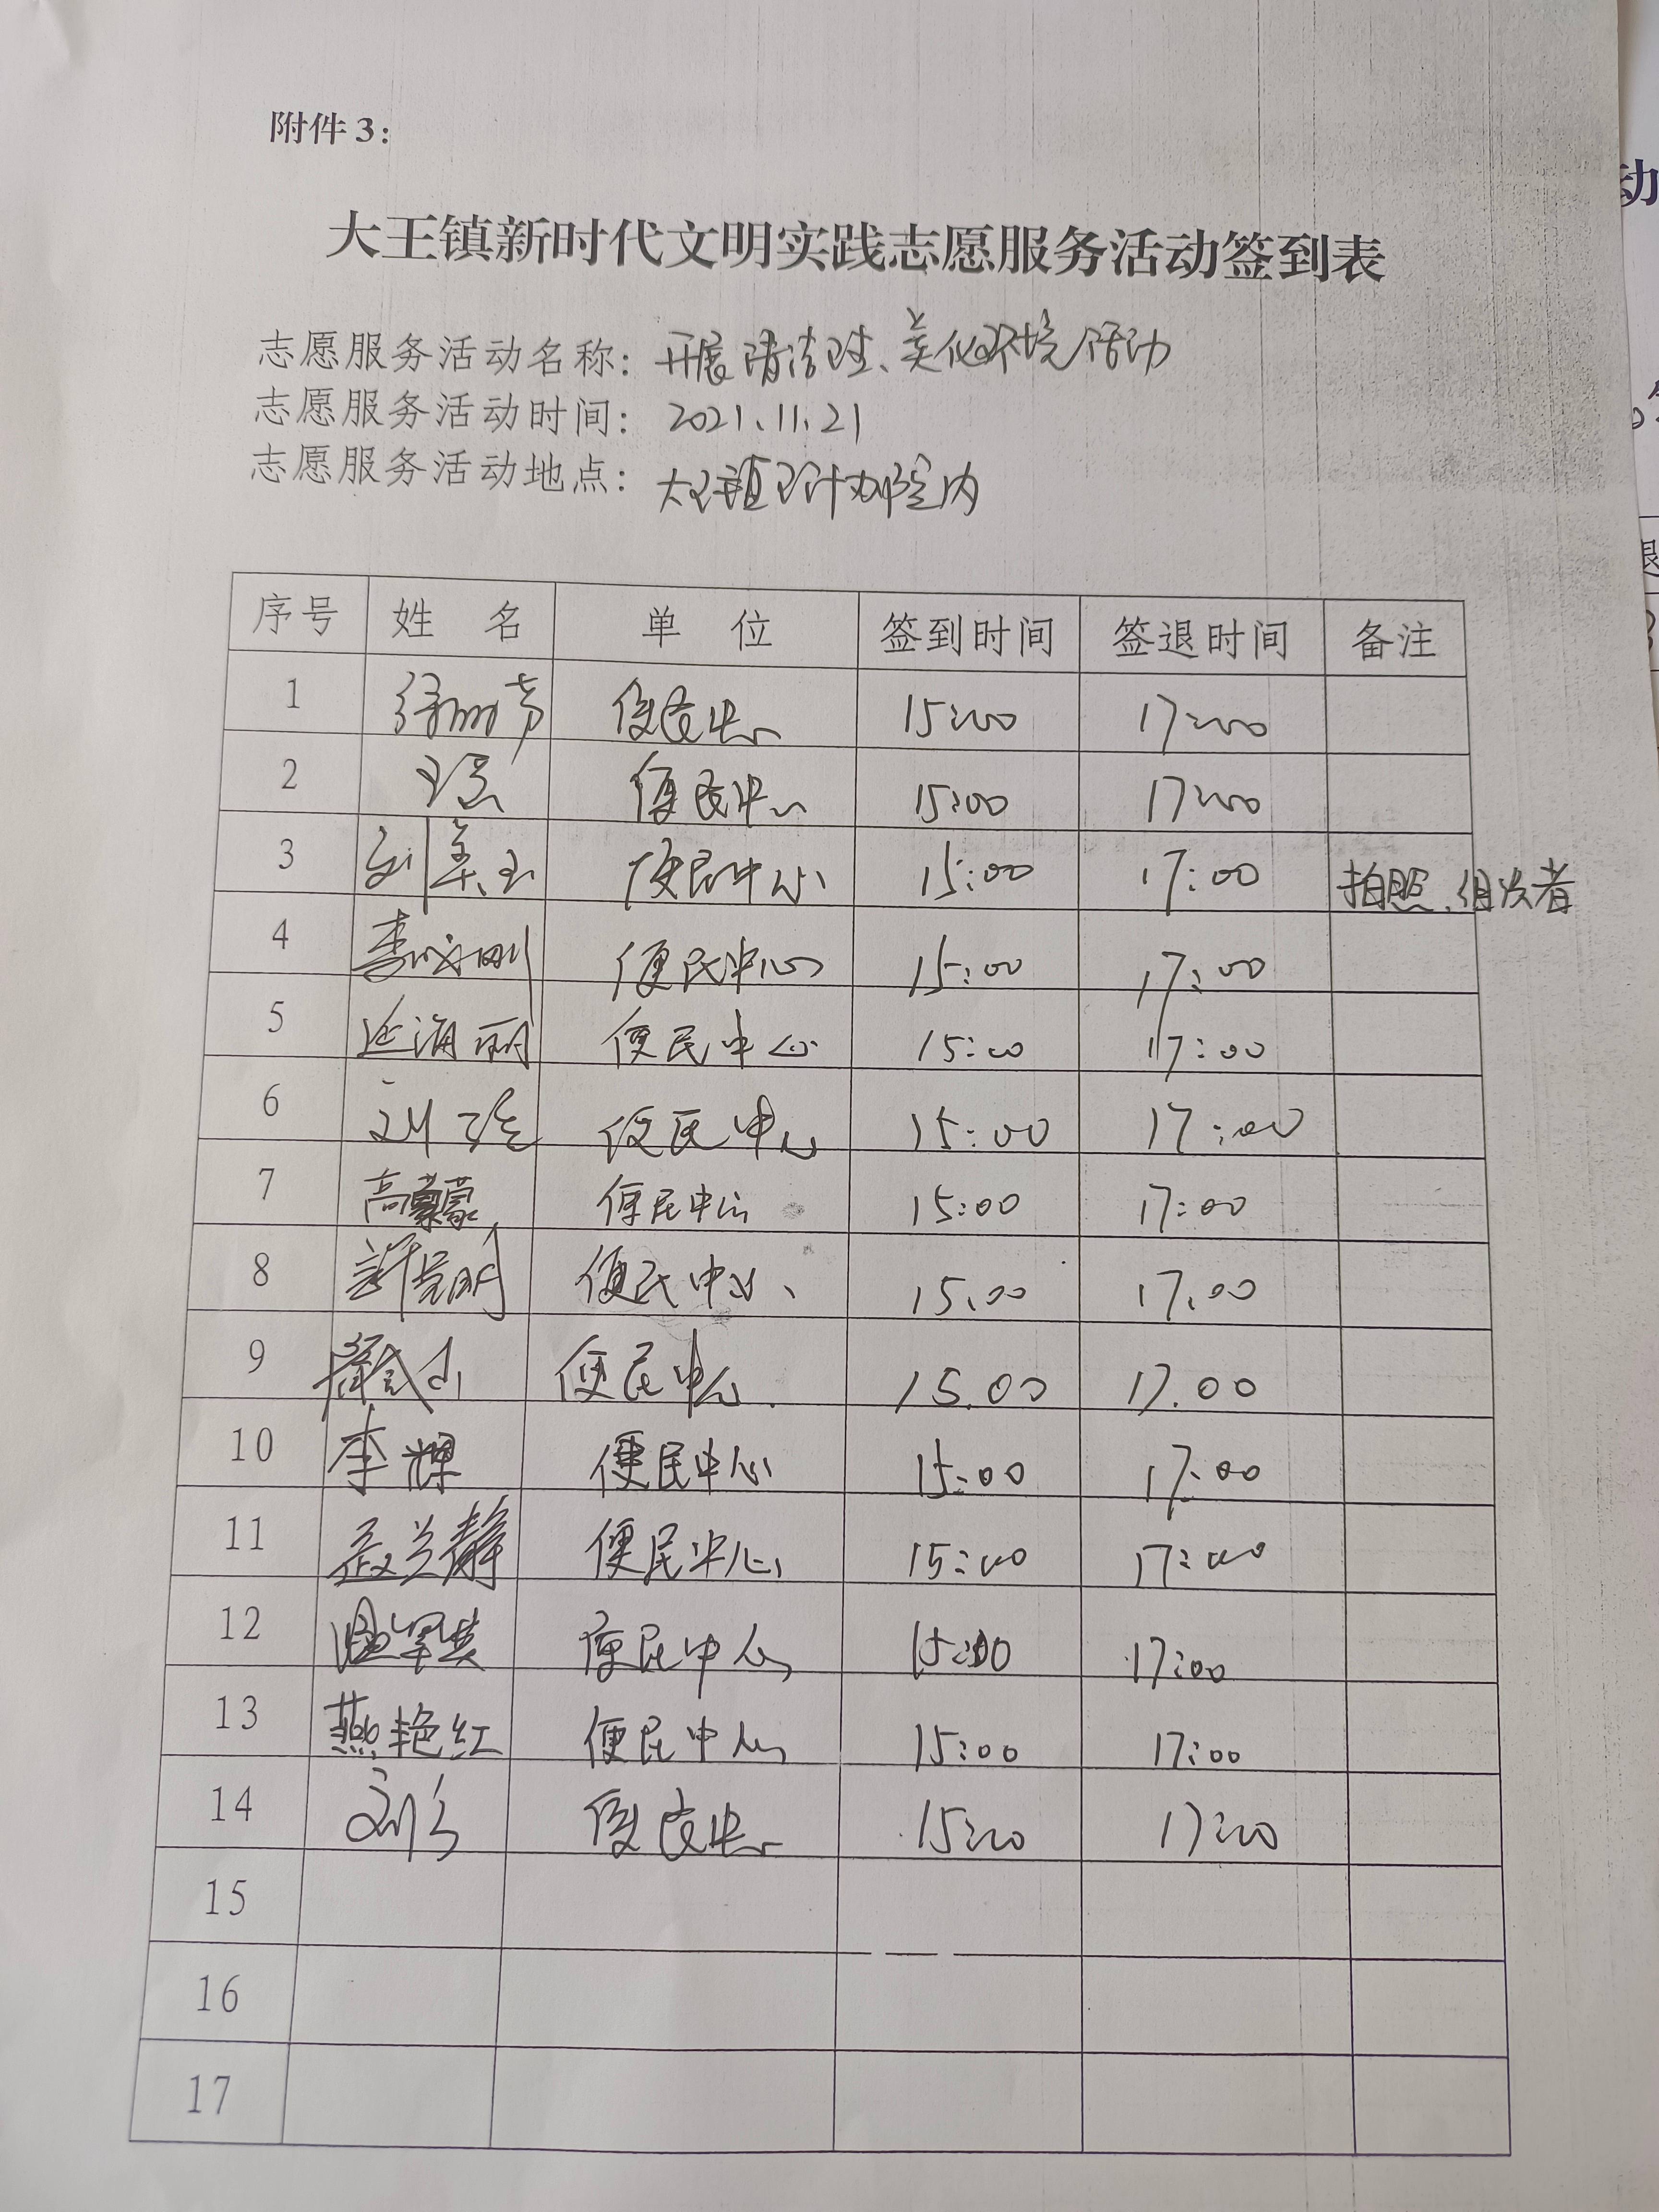 附件3：
大王镇新时代文明实践志愿服务活动签到表
志愿服务活动名称：开展清洁卫生、美化环境活动
志愿服务活动时间：2021.11.21
志愿服务活动地点：大王镇卫计办院内
序号 姓名 单位 签到时间 签退时间 备注
1 便民中心 15:00 17:00
2 便民中心 15:00 17:00
3 刘美玉 便民中心 15:00 17:00 拍照、组织者
4 便民中心 15:00 17:00
5 延海丽 便民中心 15:00 17:00
6 便民中心 15:00 17:00
7 高蒙 便民中心 15:00 17:00
8 便民中心、 15.00 17.00
9 便民中心. 15.00 17.00
10 李辉 便民中心 15:00 17:00
11 便民中心 15:00 17:00
12 便民中心 15:00 17:00
13 燕艳红 便民中心 15:00 17:00
14 便民中心 15:00 17:00
15
16
17
动
退